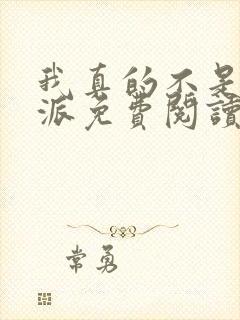 我真的不是
派免費閱讀
常勇